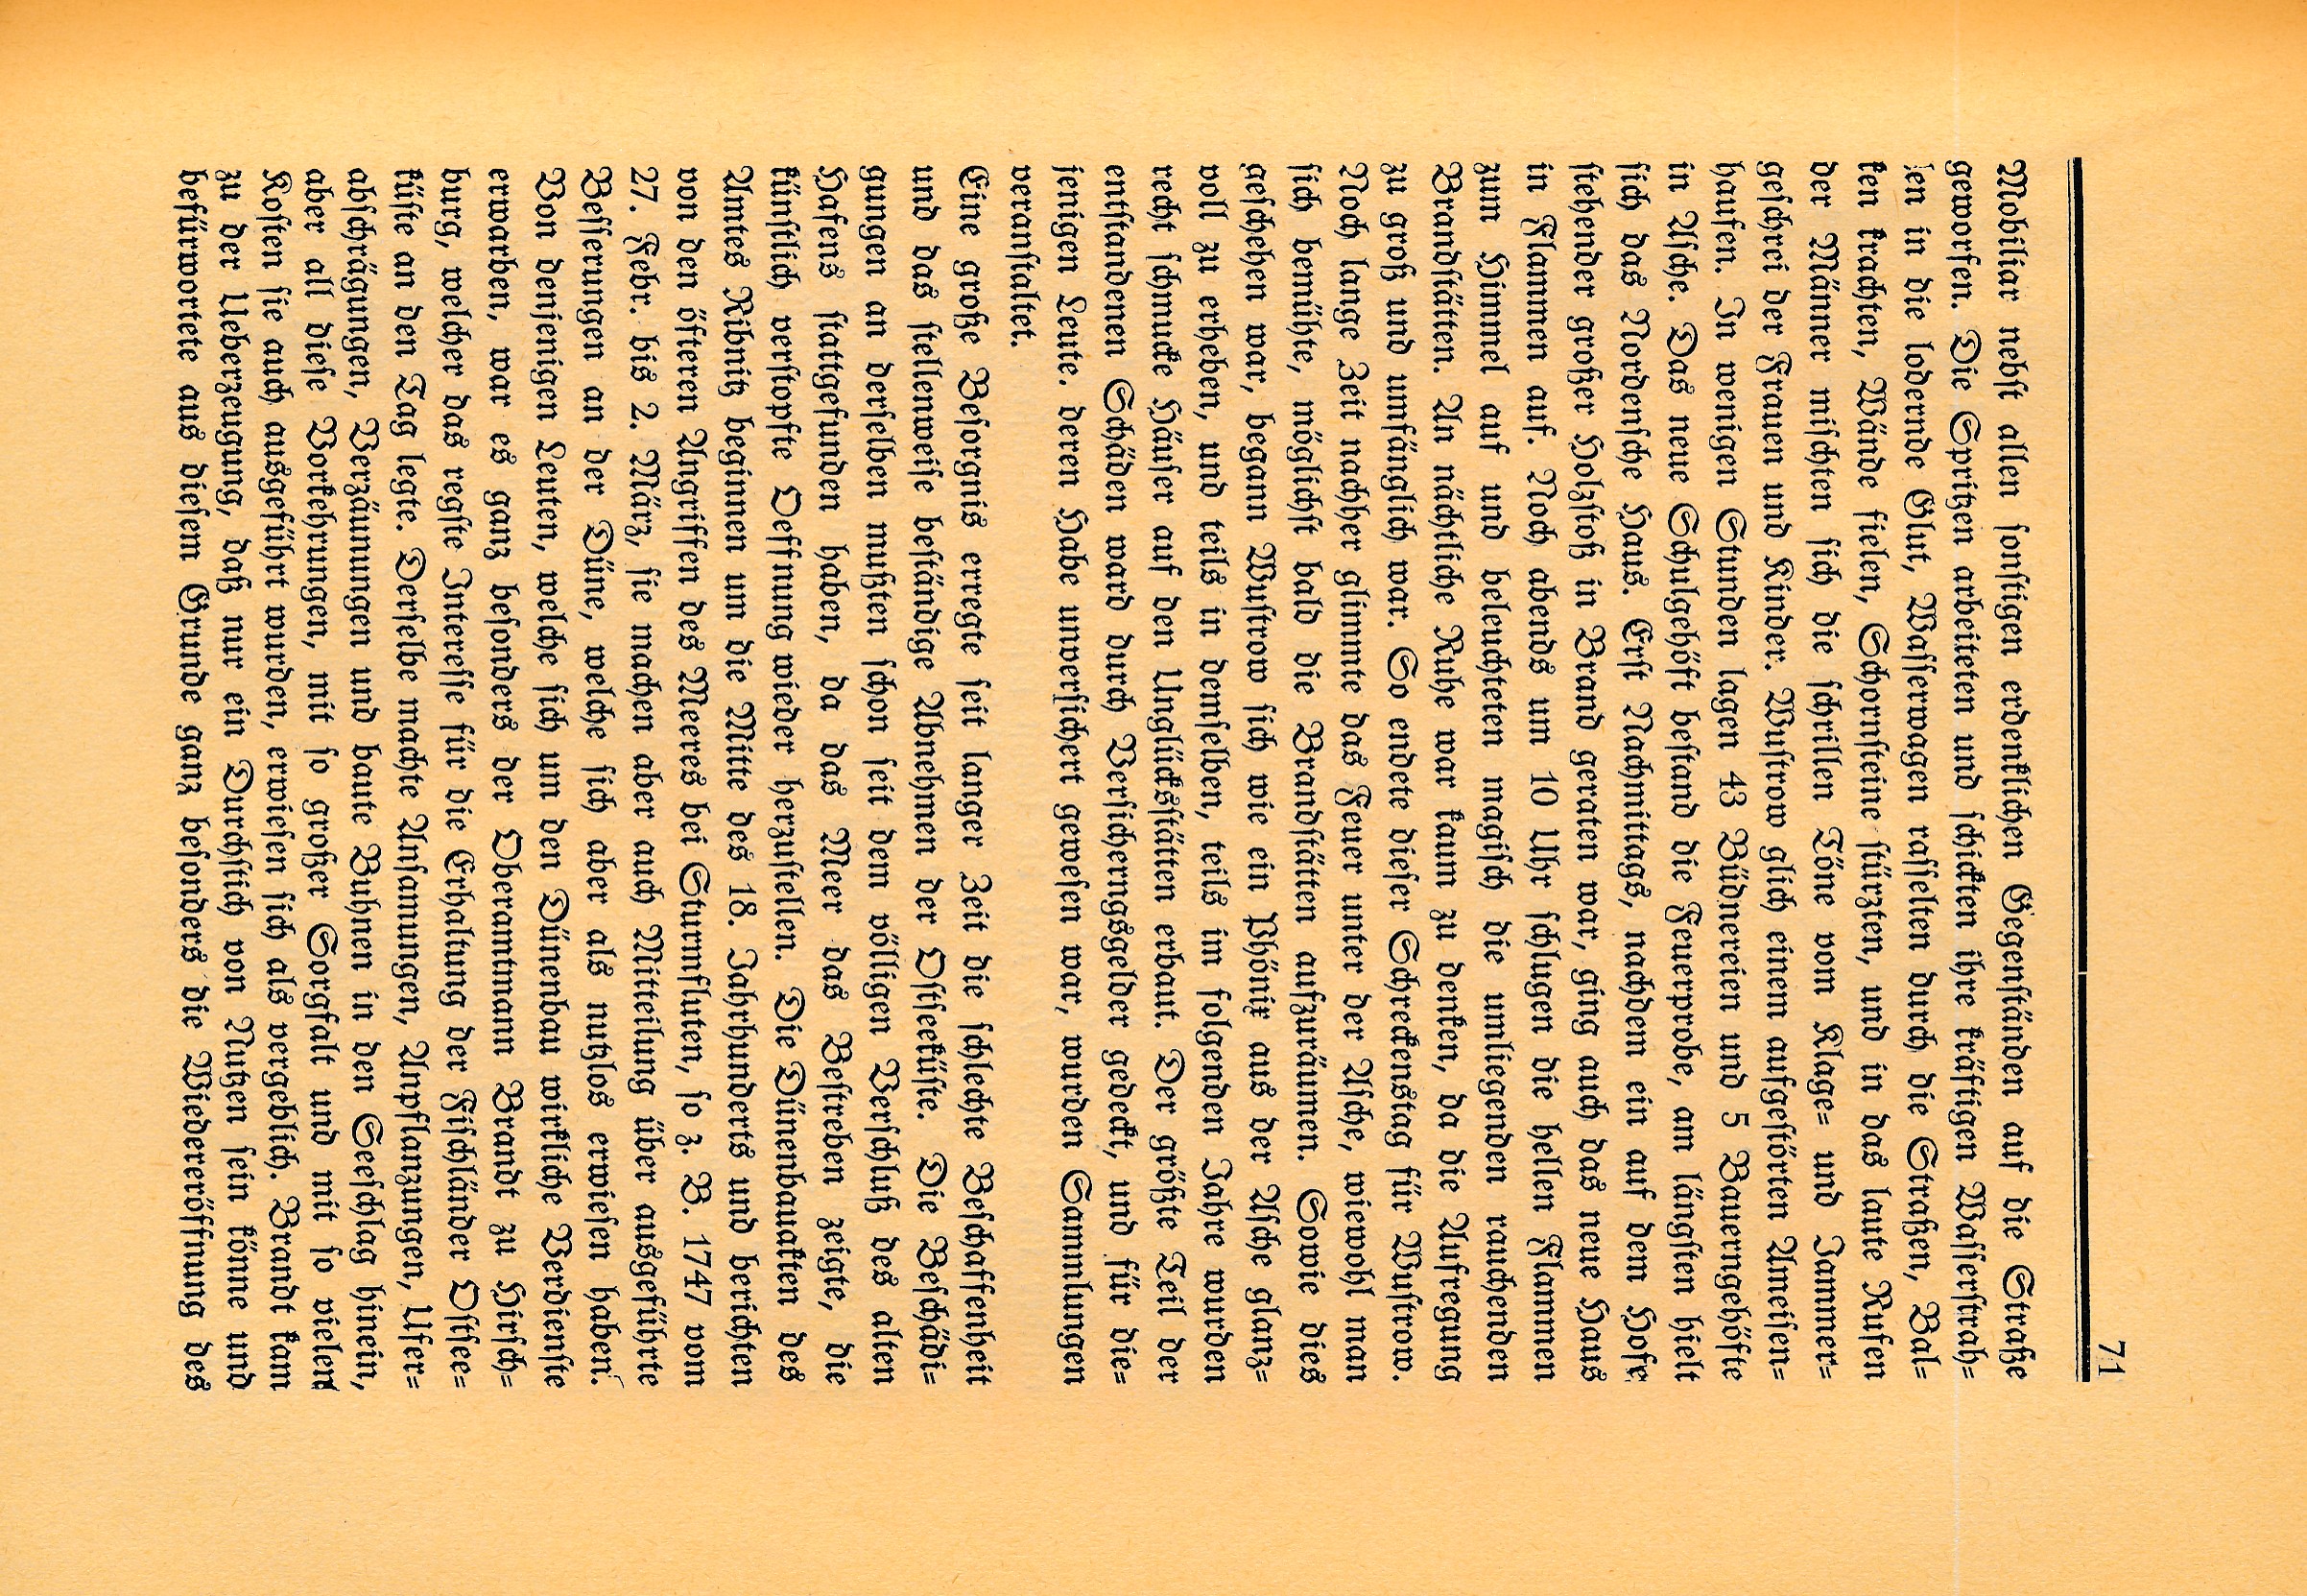 71
Mobiliar nebſt allen ſonſtigen erdenklichen Gegenſtänden auf die Straße
geworfen. Die Spritzen arbeiteten und ſchickten ihre kräftigen Waſſerſtrah-
len in die lodernde Glut, Waſſerwagen raſſelten durch die Straßen, Bal-
ken krachten, Wände fielen, Schornſteine ſtürzten, und in das laute Rufen
der Männer miſchten ſich die ſchrillen Töne vom Klage- und Jammer-
geſchrei der Frauen und Kinder. Wuſtrow glich einem aufgeſtörten Ameiſen-
haufen. In wenigen Stunden lagen 43 Büdnereien und 5 Bauerngehöfte
in Aſche. Das neue Schulgehöft beſtand die Feuerprobe, am längſten hielt
ſich das Nordenſche Haus. Erſt Nachmittags, nachdem ein auf dem Hofe
ſtehender großer Holzſtoß in Brand geraten war, ging auch das neue Haus
in Flammen auf. Noch abends um 10 Uhr ſchlugen die hellen Flammen
zum Himmel auf und beleuchteten magiſch die umliegenden rauchenden
Brandſtätten. An nächtliche Ruhe war kaum zu denken, da die Aufregung
zu groß und umfänglich war. So endete dieſer Schreckenstag für Wuſtrow.
Noch lange Zeit nachher glimmte das Feuer unter der Aſche, wiewohl man
ſich bemühte, möglichſt bald die Brandſtätten aufzuräumen. Sowie dies
geſchehen war, begann Wuſtrow ſich wie ein Phönix aus der Aſche glanz-
voll zu erheben, und teils in demſelben, teils im folgenden Jahre wurden
recht ſchmucke Häuſer auf den Unglücksſtätten erbaut. Der größte Teil der
entſtandenen Schäden ward durch Verſicherungsgelder gedeckt, und für die-
jenigen Leute. deren Habe unverſichert geweſen war, wurden Sammlungen
veranſtaltet.
Eine große Beſorgnis erregte ſeit langer Zeit die ſchlechte Beſchaffenheit
und das ſtellenweiſe beſtändige Abnehmen der Oſtſeeküſte. Die Beſchädi-
gungen an derſelben mußten ſchon ſeit dem völligen Verſchluß des alten
Hafens ſtattgefunden haben, da das Meer das Beſtreben zeigte, die
künſtlich verſtopfte Oeffnung wieder herzuſtellen. Die Dünenbauakten des
Amtes Ribnitz beginnen um die Mitte des 18. Jahrhunderts und berichten
von den öfteren Angriffen des Meeres bei Sturmfluten, ſo z. B. 1747 vom
27. Febr. bis 2. März, ſie machen aber auch Mitteilung über ausgeführte
Beſſerungen an der Düne, welche ſich aber als nutzlos erwieſen haben.
Von denjenigen Leuten, welche ſich um den Dünenbau wirkliche Verdienſte
erwarben, war es ganz beſonders der Oberamtmann Brandt zu Hirſch-
burg, welcher das regſte Intereſſe für die Erhaltung der Fiſchländer Oſtſee-
küſte an den Tag legte. Derſelbe machte Anſamungen, Anpflanzungen, Ufer-
abſchrägungen, Verzäunungen und baute Buhnen in den Seeſchlag hinein,
aber all dieſe Vorkehrungen, mit ſo großer Sorgfalt und mit ſo vielen
Koſten ſie auch ausgeführt wurden, erwieſen ſich als vergeblich. Brandt kam
zu der Ueberzeugung, daß nur ein Durchſtich von Nutzen ſein könne und
befürwortete aus dieſem Grunde ganz beſonders die Wiedereröffnung des